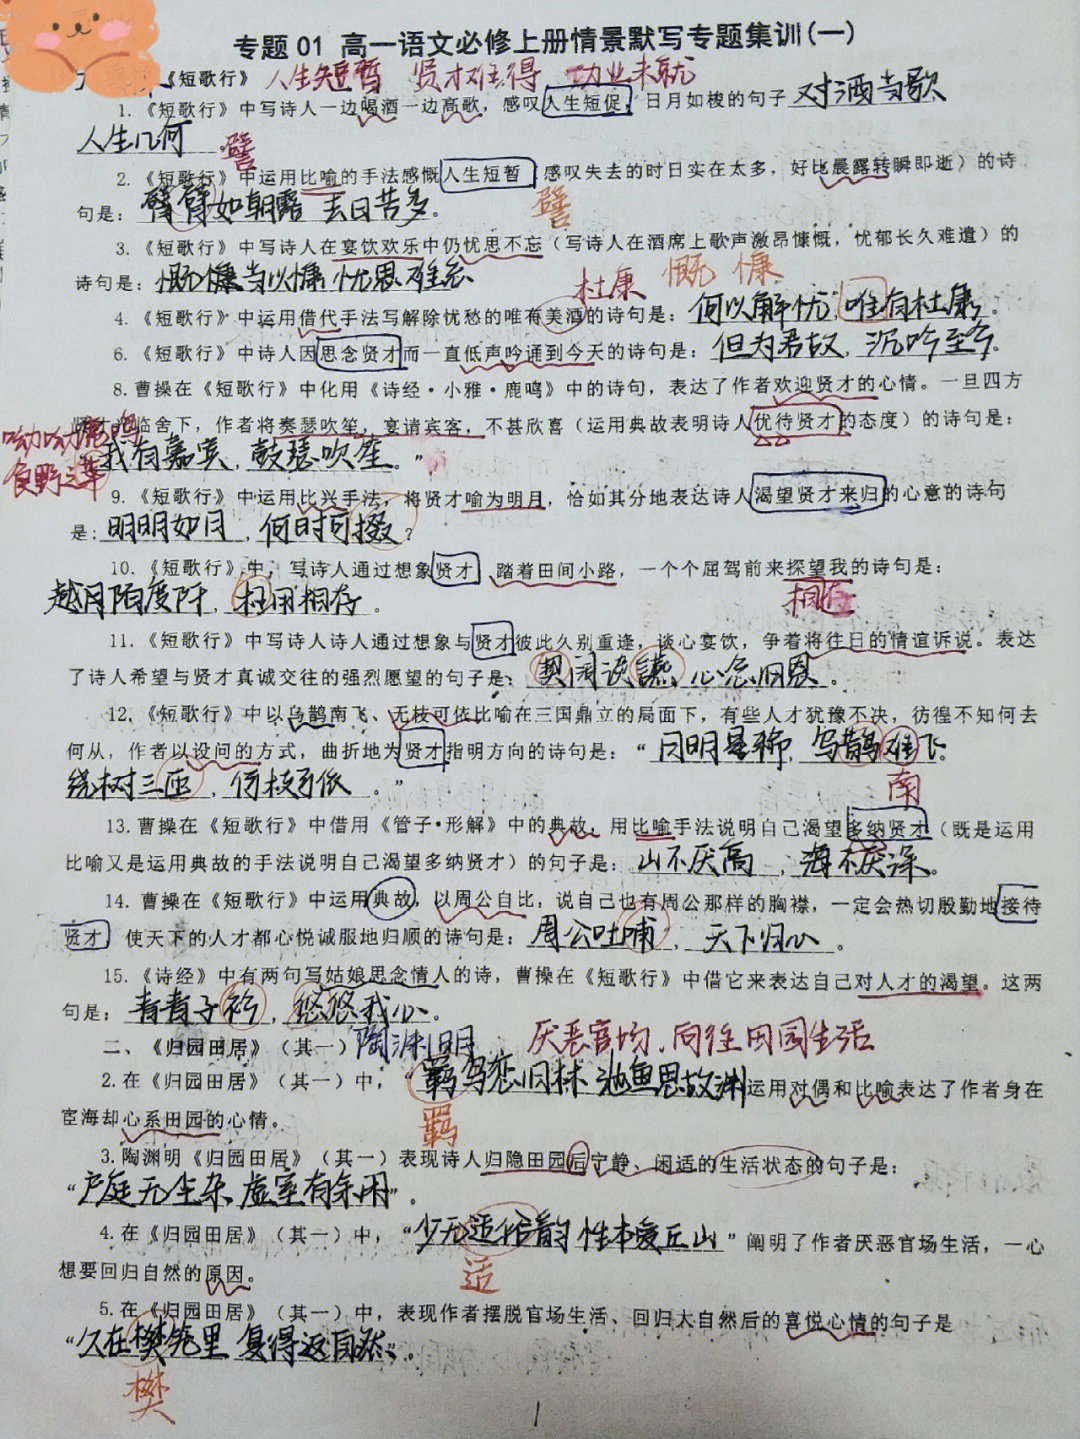 专题 01 高一语文必修上册情景默写专题集训(一)
《短歌行》 人生短暂 贤才难得 功业未就
1.《短歌行》中写诗人一边喝酒一边高歌，感叹人生短促，日月如梭的句子 对酒当歌
人生几何
譬
2.《短歌行》中运用比喻的手法感慨人生短暂 感叹失去的时日实在太多，好比晨露转瞬即逝）的诗
句是：臂臂如朝露 去日苦多。
譬
3.《短歌行》中写诗人在宴饮欢乐中仍忧思不忘（写诗人在酒席上歌声激昂慷慨，忧郁长久难遣）的
诗句是：慨慷当以慷 忧思难忘
杜康 慨 慷
4.《短歌行》中运用借代手法写解除忧愁的唯有美酒的诗句是：何以解忧，唯有杜康。
6.《短歌行》中诗人因思念贤才而一直低声吟诵到今天的诗句是：但为君故，沉吟至今。
8.曹操在《短歌行》中化用《诗经·小雅·鹿鸣》中的诗句，表达了作者欢迎贤才的心情。一旦四方
临舍下，作者将奏瑟吹笙，宴请宾客，不甚欣喜（运用典故表明诗人优待贤才的态度）的诗句是：
呦呦鹿鸣
食野之苹 我有嘉宾，鼓瑟吹笙。”
9.《短歌行》中运用比兴手法，将贤才喻为明月，恰如其分地表达诗人渴望贤才来归的心意的诗句
是：明明如月，何时可掇？
10.《短歌行》中，写诗人通过想象贤才 踏着田间小路，一个个屈驾前来探望我的诗句是：
越月陌度阡，枉用相存。
相存
11.《短歌行》中写诗人诗人通过想象与贤才彼此久别重逢，谈心宴饮，争着将往日的情谊诉说。表达
了诗人希望与贤才真诚交往的强烈愿望的句子是：契阔谈讌 心念旧恩。
12.《短歌行》中以乌鹊南飞、无枝可依比喻在三国鼎立的局面下，有些人才犹豫不决，彷徨不知何去
何从，作者以设问的方式，曲折地为贤才指明方向的诗句是：“月明星稀，乌鹊难飞。
南
绕树三匝，何枝可依。”
13.曹操在《短歌行》中借用《管子·形解》中的典故，用比喻手法说明自己渴望多纳贤才（既是运用
比喻又是运用典故的手法说明自己渴望多纳贤才）的句子是：山不厌高，海不厌深。
14.曹操在《短歌行》中运用典故，以周公自比，说自己也有周公那样的胸襟，一定会热切殷勤地接待
贤才 使天下的人才都心悦诚服地归顺的诗句是：周公吐哺，天下归心。
15.《诗经》中有两句写姑娘思念情人的诗，曹操在《短歌行》中借它来表达自己对人才的渴望。这两
句是：青青子衿，悠悠我心。
二、《归园田居》（其一）陶渊明 厌恶官场，向往田园生活
2.在《归园田居》（其一）中，“羁鸟恋旧林 池鱼思故渊 运用对偶和比喻表达了作者身在
宦海却心系田园的心情。
羁
3.陶渊明《归园田居》（其一）表现诗人归隐田园后宁静、闲适的生活状态的句子是：
“户庭无尘杂 虚室有余闲”。
4.在《归园田居》（其一）中，“少无适俗韵 性本爱丘山”阐明了作者厌恶官场生活，一心
想要回归自然的原因。
适
5.在《归园田居》（其一）中，表现作者摆脱官场生活、回归大自然后的喜悦心情的句子是
“久在樊笼里 复得返自然”。
樊
1